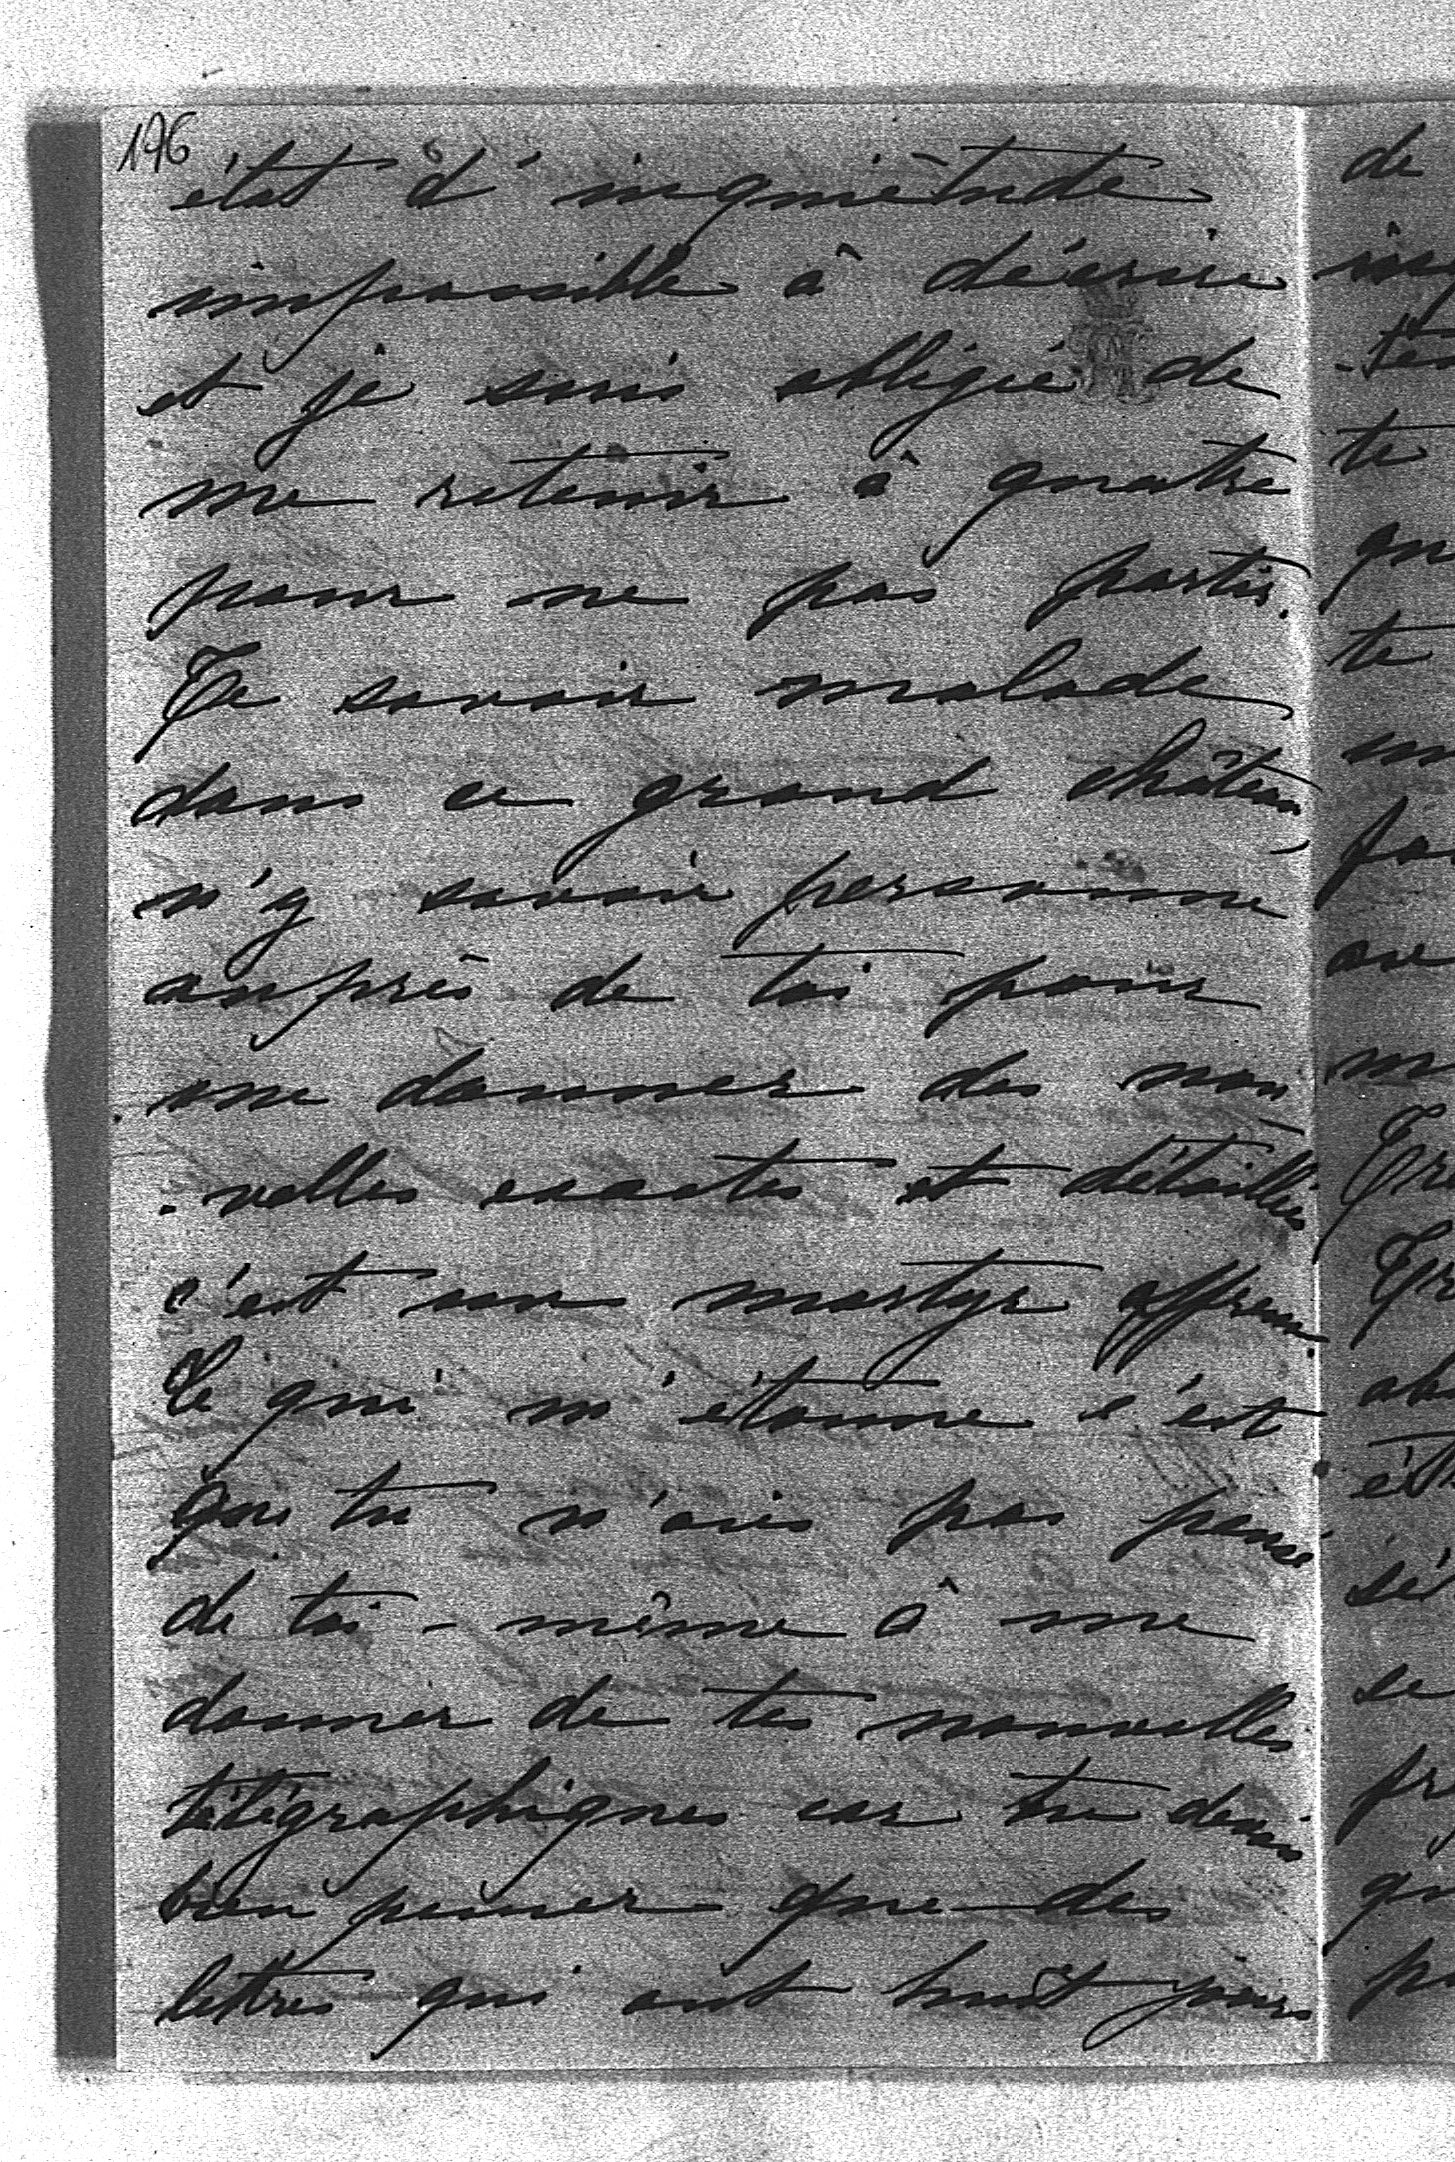 196
état d'inquiétude
impossible à décrire
et je suis obligé de
me retenir à quatre
pour ne pas partir.
Te savoir malade
dans ce grand château
n'y savoir personne
auprès de toi pour
me donner des nou
velles exactes et détaillées
c'est un martyr affreux.
Ce qui m'étonne c'est
que tu n'aies pas pensé
de toi-même à me
donner de tes nouvelles
télégraphiques car tu devais
bien penser que des
lettres qui ont huit jours
de
te
te